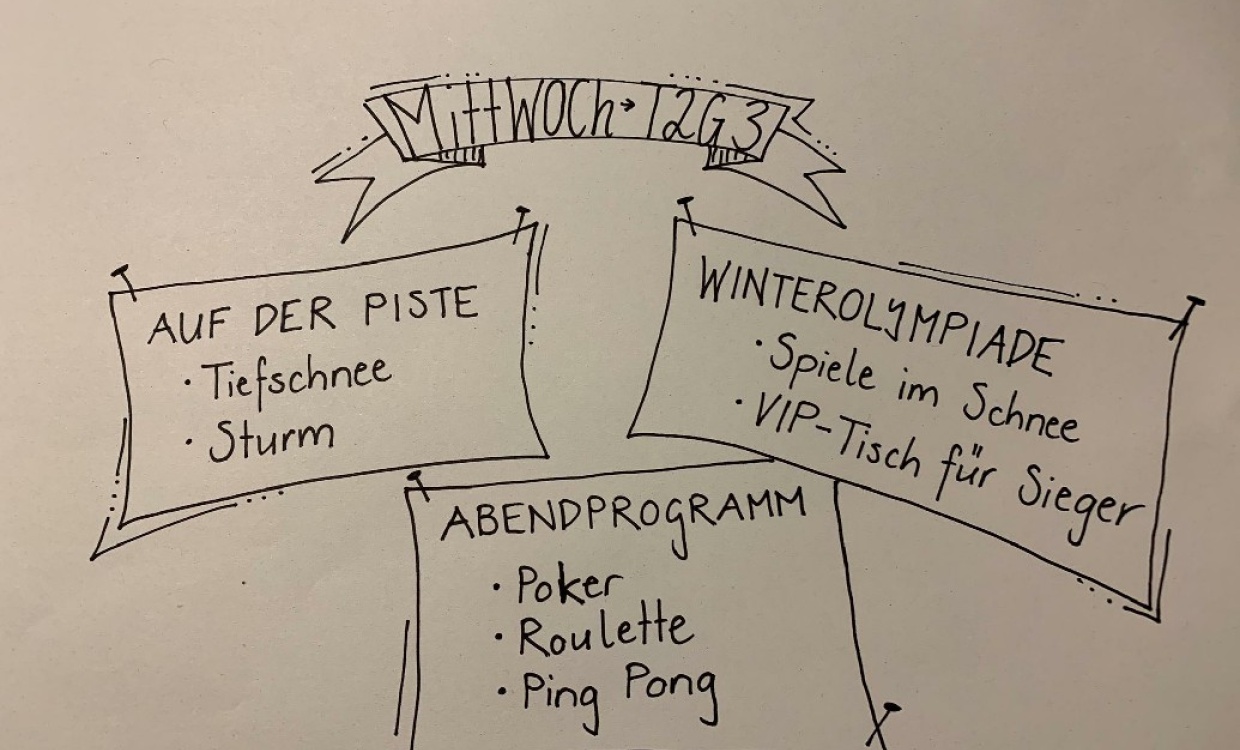 MittWOCh → T2G3
AUF DER PISTE
· Tiefschnee
· Sturm
WINTEROLYMPIADE
· Spiele im Schnee
· VIP-Tisch für Sieger
ABENDPROGRAMM
· Poker
· Roulette
· Ping Pong